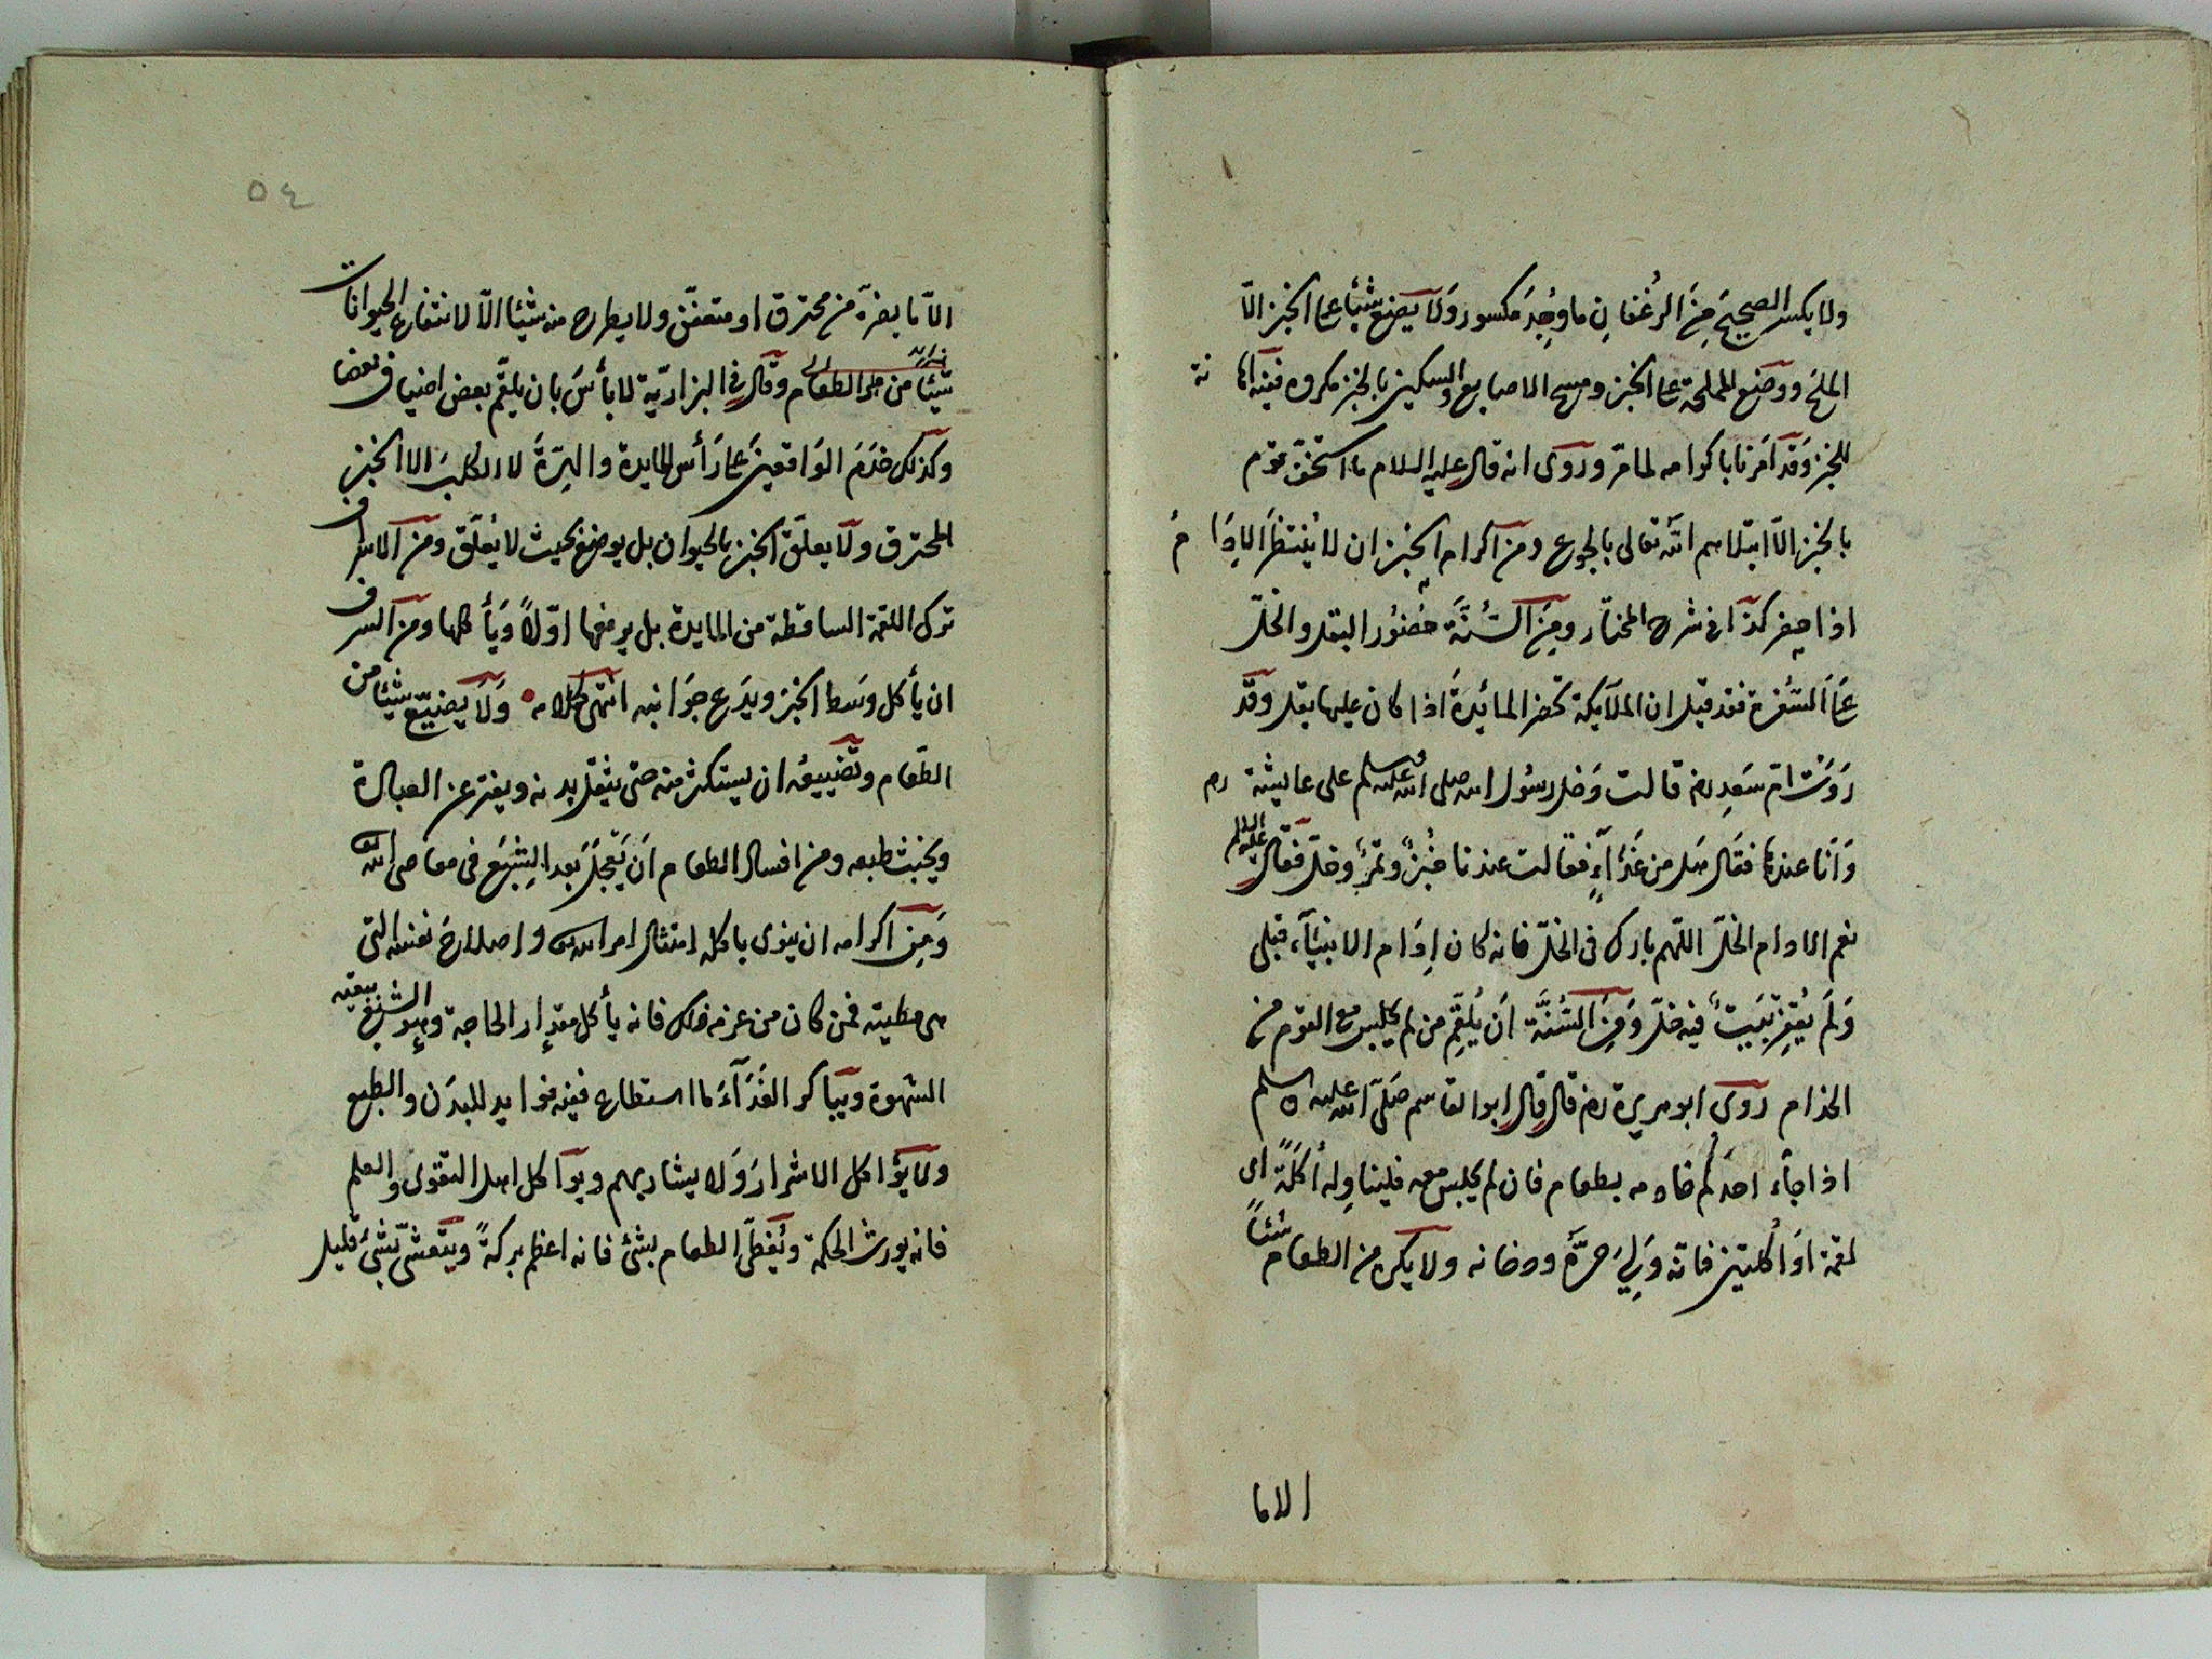 ولا يكسر الصحيح من الرغفان ما وجد مكسور ولا يضع شيئا على الخبز الا
الملح ووضع المملحة على الخبز ومسح الاصابع والسكين بالخبز مكروه ففيه اها نة
للخبز وقد امرنا باكرامه لما مر وروى انه قال عليه السلام ما استخف قوم
بالخبز الا ابتلاهم الله تعالى بالجوع ومن اكرام الخبز ان لا ينتظر الادا م
اذا حضر كذا فى شرح المختار ومن السنة حضور البقل والخل
على السفرة فقد قيل ان الملآيكة تحضر المائدة اذا كان عليها بقل وقد
روت ام سعد رض قالت دخل رسول الله صلى الله عليه وسلم على عايشة رض
وانا عندها فقال هل من غداء فقالت عندنا خبز وتمر وخل فقال عليه السلام
نعم الادام الخل اللهم بارك فى الخل فانه كان ادام الانبيآء قبلى
ولم يفتقر بيت فيه خل ومن السنة ان يلقم من لم يجلس مع القوم من
الخدام روى ابو هريرة رض قال قال ابو القاسم صلى الله عليه وسلم
اذا جاء احدكم خادمه بطعام فان لم يجلس معه فليناوله أكلة اى
لقمة او أكلتين فانه ولى حره ودخانه ولا يكره من الطعام شيئا
الا ما
٥٤
الا ما يضره من محترق او متعفن ولا يطرح منه شيئا الا لانتفاع الحيوانات
شيئا من الطعام وقال فى البزازية لا بأس بان يلقم بعض اضياف بعضا
وكذلك خدم الواقفين على رأس المايدة والهرة لا الكلب الا الخبز
المحترق ولا يعلق الخبز بالحيوان بل يوضع بحيث لا يعلق ومن الاسراف
ترك اللقمة الساقطة من المايدة بل يرفعها اولا ويأكلها ومن السرف
ان يأكل وسط الخبز ويدع جوانبه انتهى كلامه ولا يضيع شيئا من
الطعام وتضييعه ان يستكثر منه حتى يثقل بدنه ويفتر عن العبادة
ويخبث طبعه ومن افساد الطعام ان يعجل بعد الشبع فى معاصى الله
ومن اكرامه ان ينوى باكله امتثال امر الله واصلاح نفسه التى
هى مطيته فمن كان من عزمه ذلك فانه يأكل مقدار الحاجة
الشهوة ويباكر الغدآء ما استطاع ففيه فوايد للبدن والطبع
ولا يؤاكل الاشرار ولا يشاربهم ويؤاكل اهل التقوى والعلم
فانه يورث الحكمة ويغطى الطعام بشئ فانه اعظم بركة ويتعشى بشئ قليل